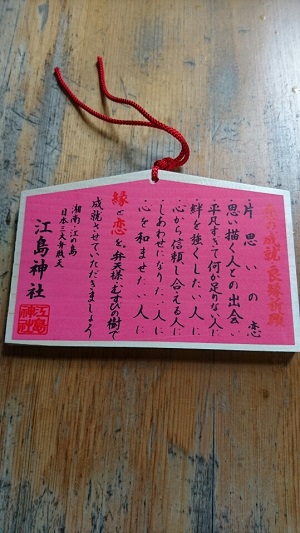 恋の成就・良縁祈願
片思いの恋
思い描く人との出会い
平凡すぎて何か足りない人に
絆を強くしたい人に
心から信頼し合える人に
しあわせになりたい人に
心を和ませたい人に
縁と恋を、弁天様のむすびの樹で
成就させていただきましょう
湘南・江の島
日本三大弁財天
江島神社
江島神社